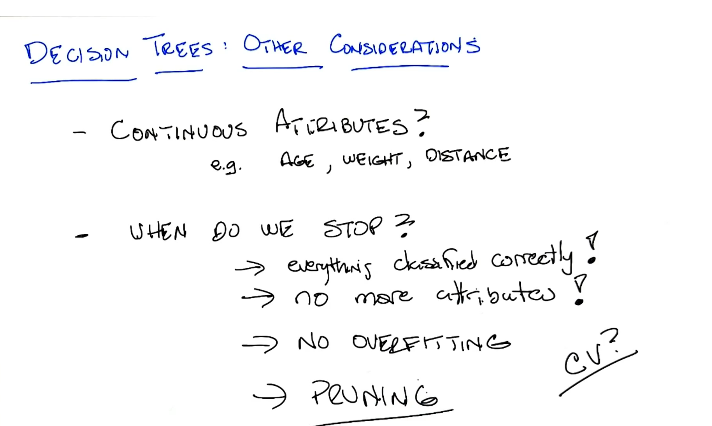 DECISION TREES: OTHER CONSIDERATIONS
- CONTINUOUS ATTRIBUTES?
e.g. AGE, WEIGHT, DISTANCE
- WHEN DO WE STOP?
→ everything classified correctly!
→ no more attributes!
→ NO OVERFITTING
CV?
→ PRUNING